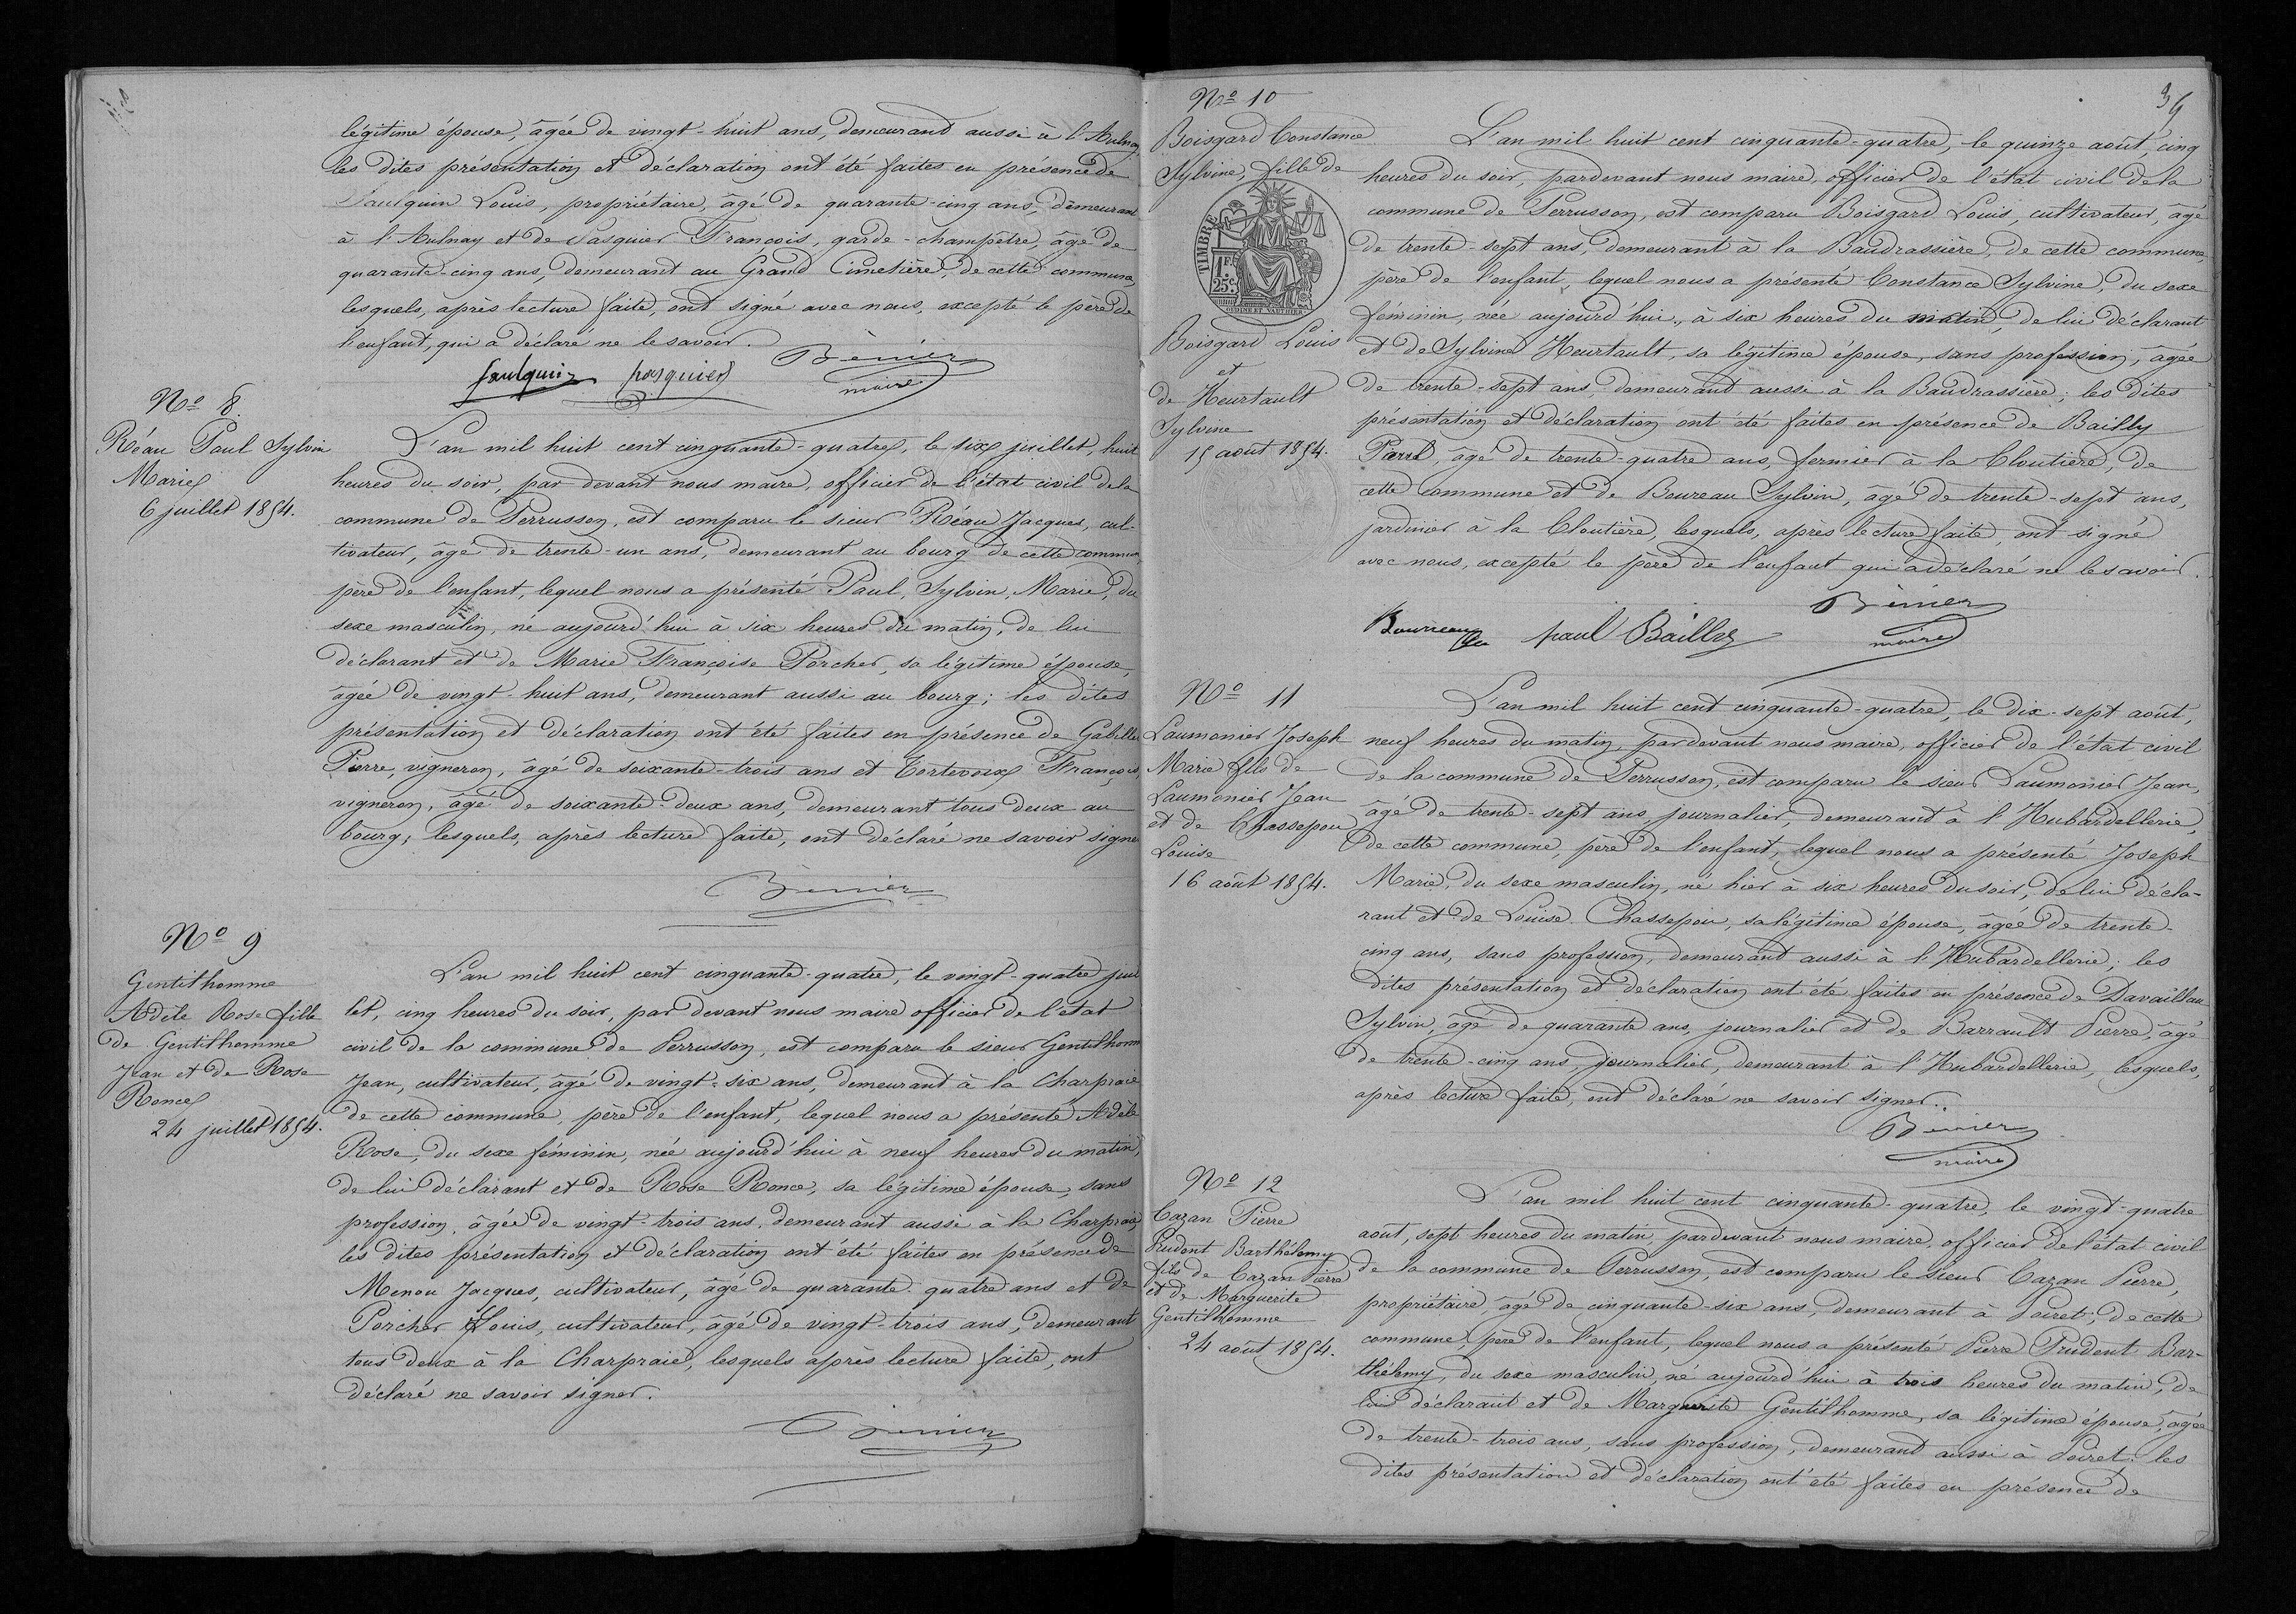 légitime épouse, âgée de vingt-huit ans, demeurant aussi à l'Aulnay,
les dites présentation et déclaration ont été faites en présence de
Saulquin Louis, propriétaire, âgé de quarante-cinq ans, demeurant
à l'Aulnay et de Pasquier François, garde-champêtre, âgé de
quarante-cinq ans, demeurant au Grand Cimetière, de cette commune,
lesquels, après lecture faite, ont signé avec nous, excepté le père de
l'enfant, qui a déclaré ne le savoir.
Saulquin pasquier Bénier
maire
No 8.
Réau Paul Sylvin
Marie
6 juillet 1854.
L'an mil huit cent cinquante-quatre, le six juillet, huit
heures du soir, par devant nous maire, officier de l'état civil de la
commune de Perrusson, est comparu le sieur Réau Jacques, cul-
tivateur, âgé de trente-un ans, demeurant au bourg de cette commune,
père de l'enfant, lequel nous a présenté Paul, Sylvin, Marie, du
sexe masculin, né aujourd'hui à six heures du matin, de lui
déclarant et de Marie Françoise Porcher, sa légitime épouse,
âgée de vingt-huit ans, demeurant aussi au bourg; les dites
présentation et déclaration ont été faites en présence de
Pierre, vigneron, âgé de soixante-trois ans et Tortevoix François,
vigneron, âgé de soixante-deux ans, demeurant tous deux au
bourg; lesquels, après lecture faite, ont déclaré ne savoir signer
Bénier
No 9
Gentilhomme
Adèle Rose fille
de Gentilhomme
Jean et de Rose
Ronce
24 juillet 1854.
L'an mil huit cent cinquante-quatre, le vingt-quatre juil
let, cinq heures du soir, par devant nous maire officier de l'état
civil de la commune de Perrusson, est comparu le sieur Gentilhomme
Jean, cultivateur, âgé de vingt-six ans, demeurant à la Charpraie
de cette commune, père de l'enfant, lequel nous a présenté Adèle
Rose, du sexe féminin, née aujourd'hui à neuf heures du matin,
de lui déclarant et de Rose Ronce, sa légitime épouse, sans
profession, âgée de vingt-trois ans, demeurant aussi à la Charpraie
les dites présentation et déclaration ont été faites en présence de
Menou Jacques, cultivateur, âgé de quarante-quatre ans et de
Porcher Louis, cultivateur, âgé de vingt-trois ans, demeurant
tous deux à la Charpraie, lesquels après lecture faite, ont
déclaré ne savoir signer.
Bénier
39
No 10
Boisgard Constance
Sylvine, fille de
TIMBRE
1F.
25c.
Boisgard Louis
et
de Heurtault
Sylvine
15 août 1854.
L'an mil huit cent cinquante-quatre, le quinze août, cinq
heures du soir, pardevant nous maire, officier de l'état civil de la
commune de Perrusson, est comparu Boisgard Louis, cultivateur, âgé
de trente-sept ans, demeurant à la Baudrassière, de cette commune,
père de l'enfant, lequel nous a présenté Constance Sylvine, du sexe
féminin, née aujourd'hui, à six heures du matin, de lui déclarant
et de Sylvine Heurtault, sa légitime épouse, sans profession, âgée
de trente-sept ans, demeurant aussi à la Baudrassière; les dites
présentation et déclaration ont été faites en présence de Bailly
Paul, âgé de trente-quatre ans, fermier à la Cloutière, de
cette commune et de Boureau Sylvin, âgé de trente-sept ans,
jardinier à la Cloutière, lesquels, après lecture faite, ont signé
avec nous, excepté le père de l'enfant qui a déclaré ne le savoir.
paul Bailly Bénier
maire
No 11
Laumonier Joseph
Marie fils de
Laumonier Jean
et de Chassepou
Louise
16 août 1854.
L'an mil huit cent cinquante-quatre, le dix-sept août,
neuf heures du matin, pardevant nous maire, officier de l'état civil
de la commune de Perrusson, est comparu le sieur Laumonier Jean,
âgé de trente-sept ans, journalier, demeurant à l'Hubardellerie,
de cette commune, père de l'enfant, lequel nous a présenté Joseph
Marie, du sexe masculin, né hier à six heures du soir, de lui décla-
rant et de Louise Chassepou, sa légitime épouse, âgée de trente-
cinq ans, sans profession, demeurant aussi à l'Hubardellerie; les
dites présentation et déclaration ont été faites en présence de Davaillau
Sylvin, âgé de quarante ans, journalier et de Barrault Pierre, âgé
de trente-cinq ans, journalier, demeurant à l'Hubardellerie, lesquels,
après lecture faite, ont déclaré ne savoir signer.
Bénier
maire
No 12
Cazan Pierre
Prudent Barthélemy
fils de Cazan Pierre
et de Marguerite
Gentilhomme
24 août 1854.
L'an mil huit cent cinquante-quatre, le vingt-quatre
août, sept heures du matin, pardevant nous maire, officier de l'état civil
de la commune de Perrusson, est comparu le sieur Cazan Pierre,
propriétaire, âgé de cinquante-six ans, demeurant à Poiret, de cette
commune, père de l'enfant, lequel nous a présenté Pierre Prudent Bar-
thélemy, du sexe masculin, né aujourd'hui à trois heures du matin, de
lui déclarant et de Marguerite Gentilhomme, sa légitime épouse, âgée
de trente-trois ans, sans profession, demeurant aussi à Poiret, les
dites présentation et déclaration ont été faites en présence de